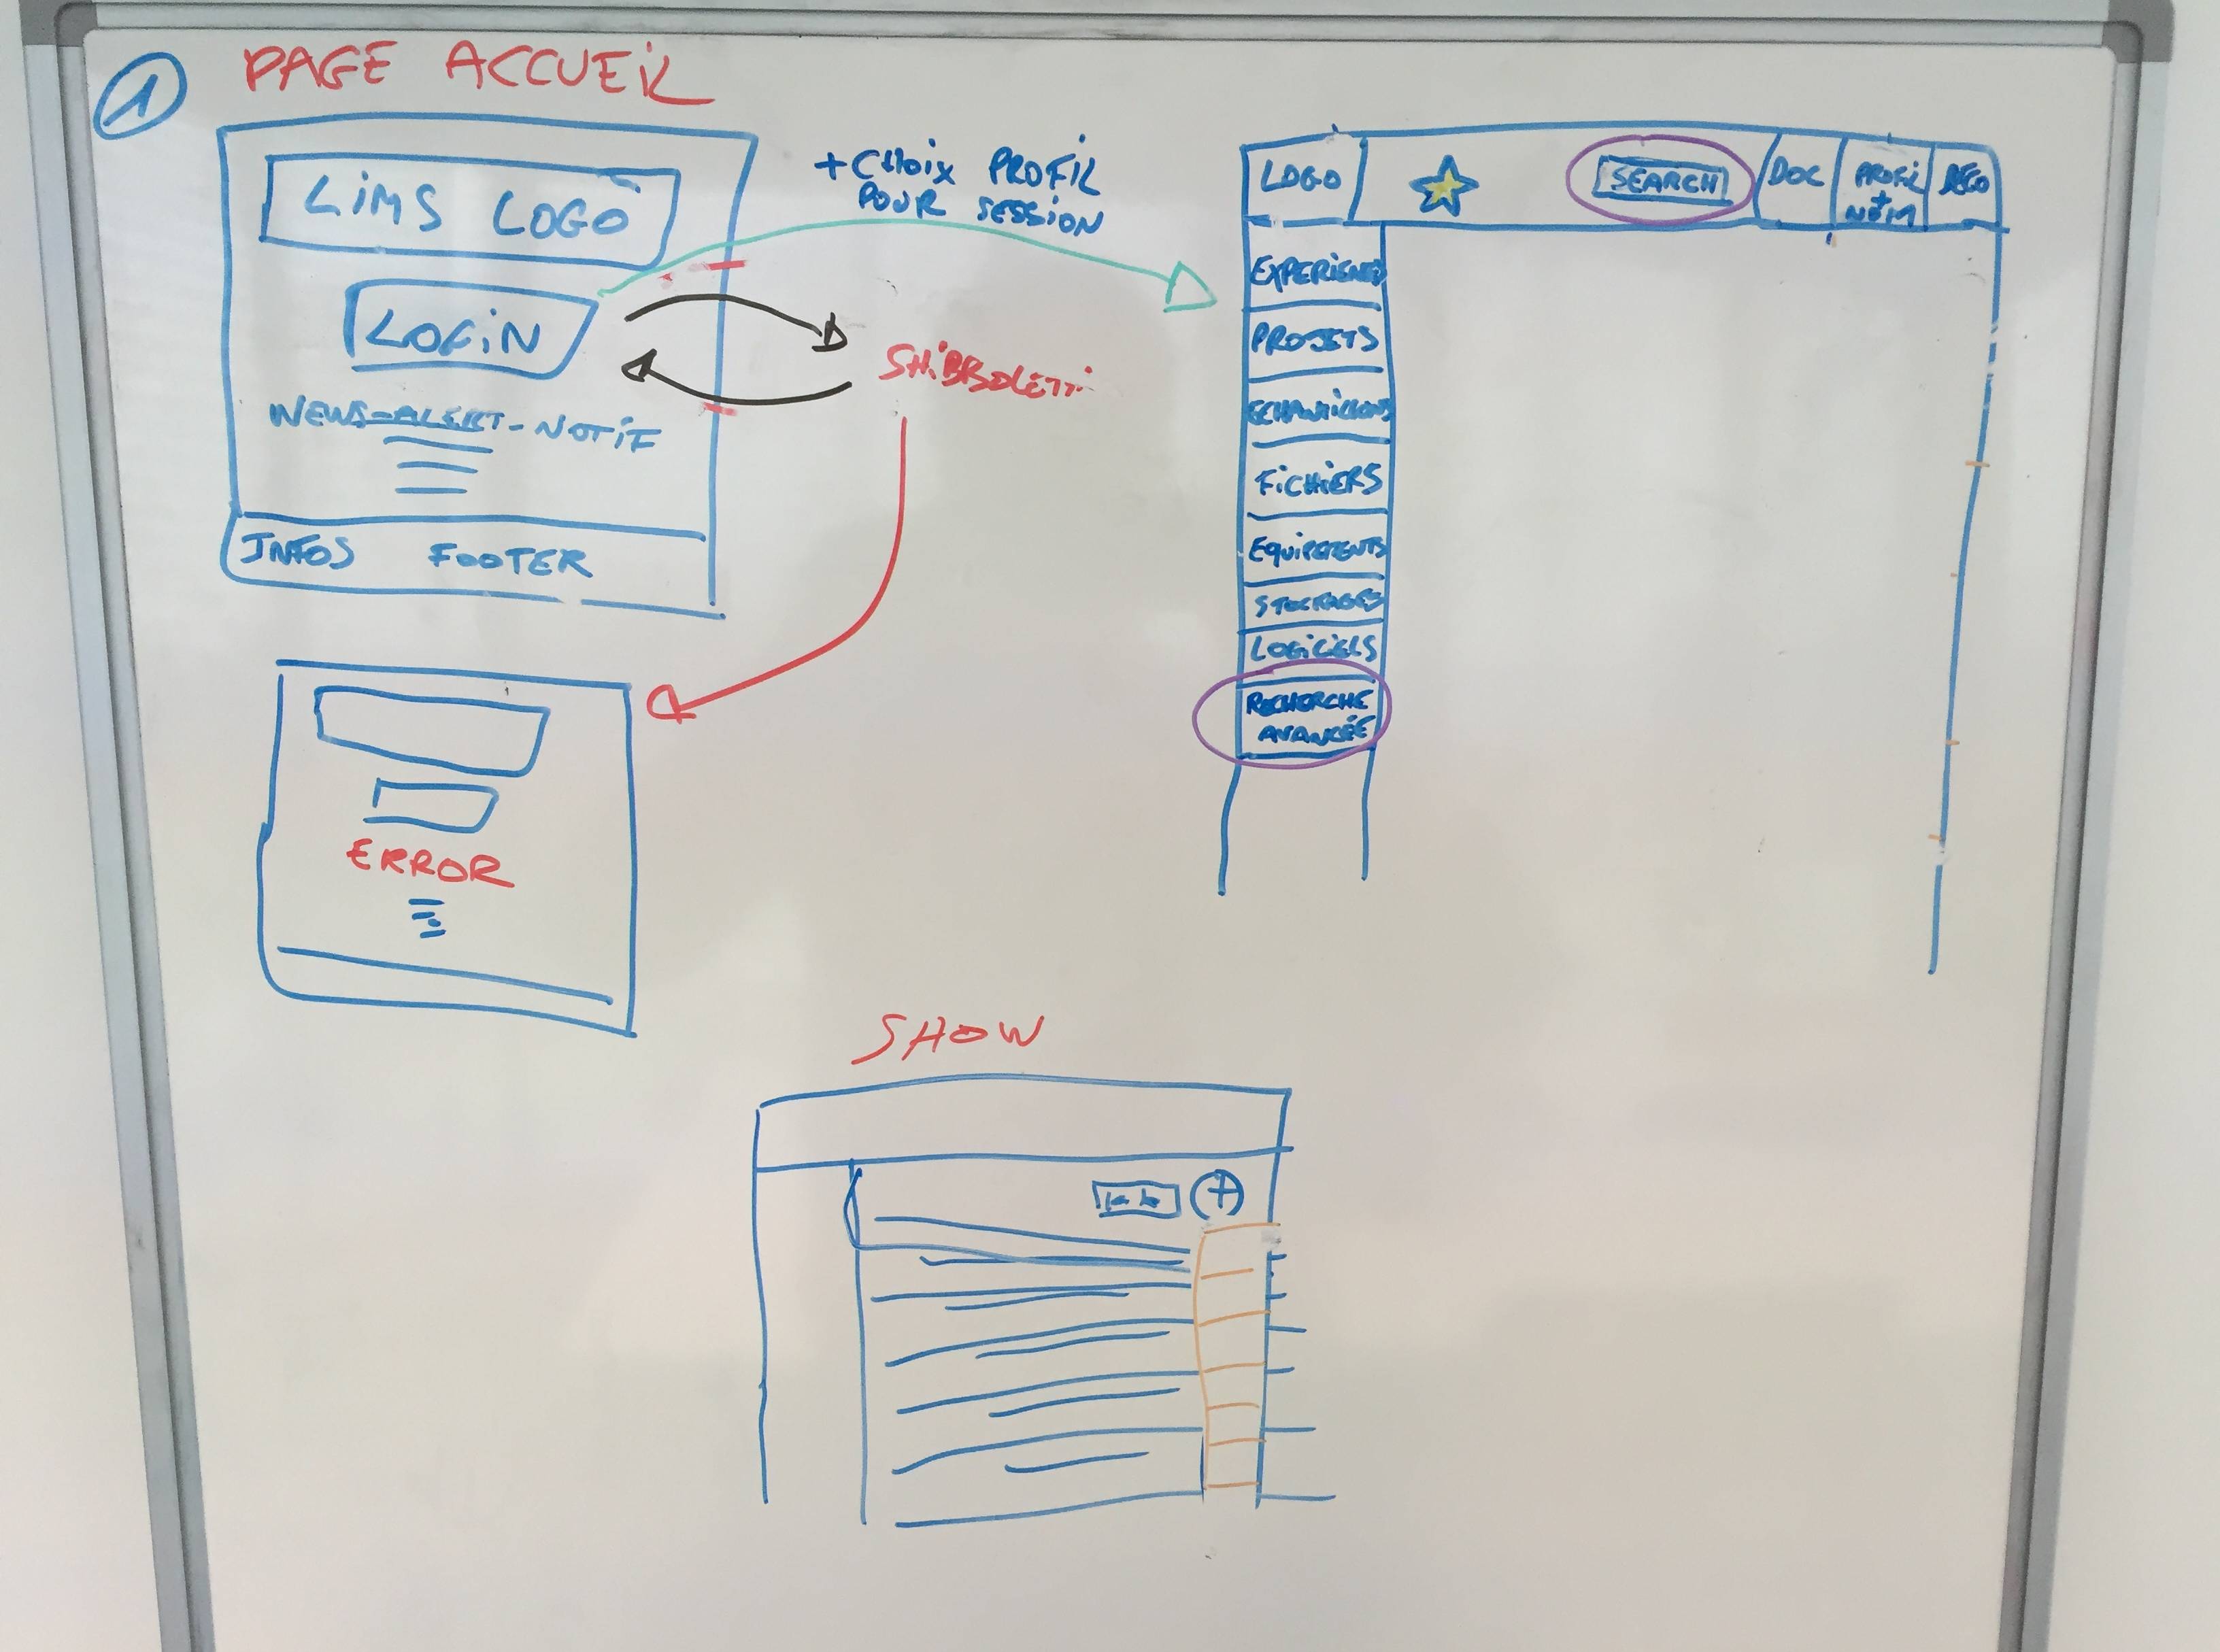 1
PAGE ACCUEIL
LiMS LOGO
LOGiN
NEWS-ALERT-NOTIF
INFOS FOOTER
+CHOIX PROFIL
POUR SESSION
SHIBBOLETH
ERROR
LOGO
SEARCH
DOC
PROFIL
+
NOM
DECO
PROJETS
ECHANTILLONS
FICHIERS
EQUIPEMENTS
STOCKAGES
LOGICIELS
RECHERCHE
AVANCÉE
SHOW
+